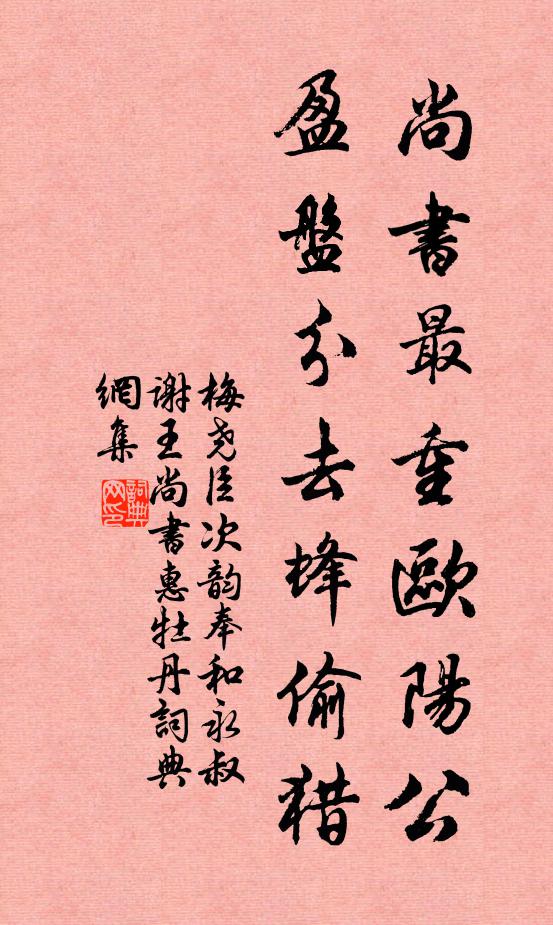 尚書最重歐陽公
盈盤分去蜂偷猎
梅尧臣次韵奉和永叔
謝王尚書惠牡丹詞典
網集
詞典
网印